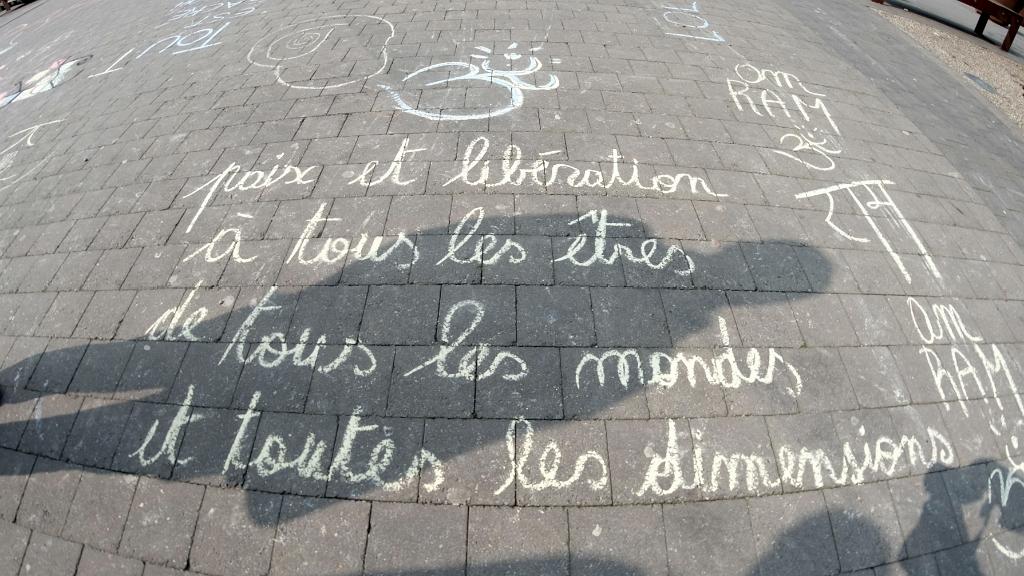 TOUT
TOUT
ॐ
om
RAM
ॐ
paix et libération
à tous les êtres
de tous les mondes
et toutes les dimensions
राम
om
RAM
ॐ